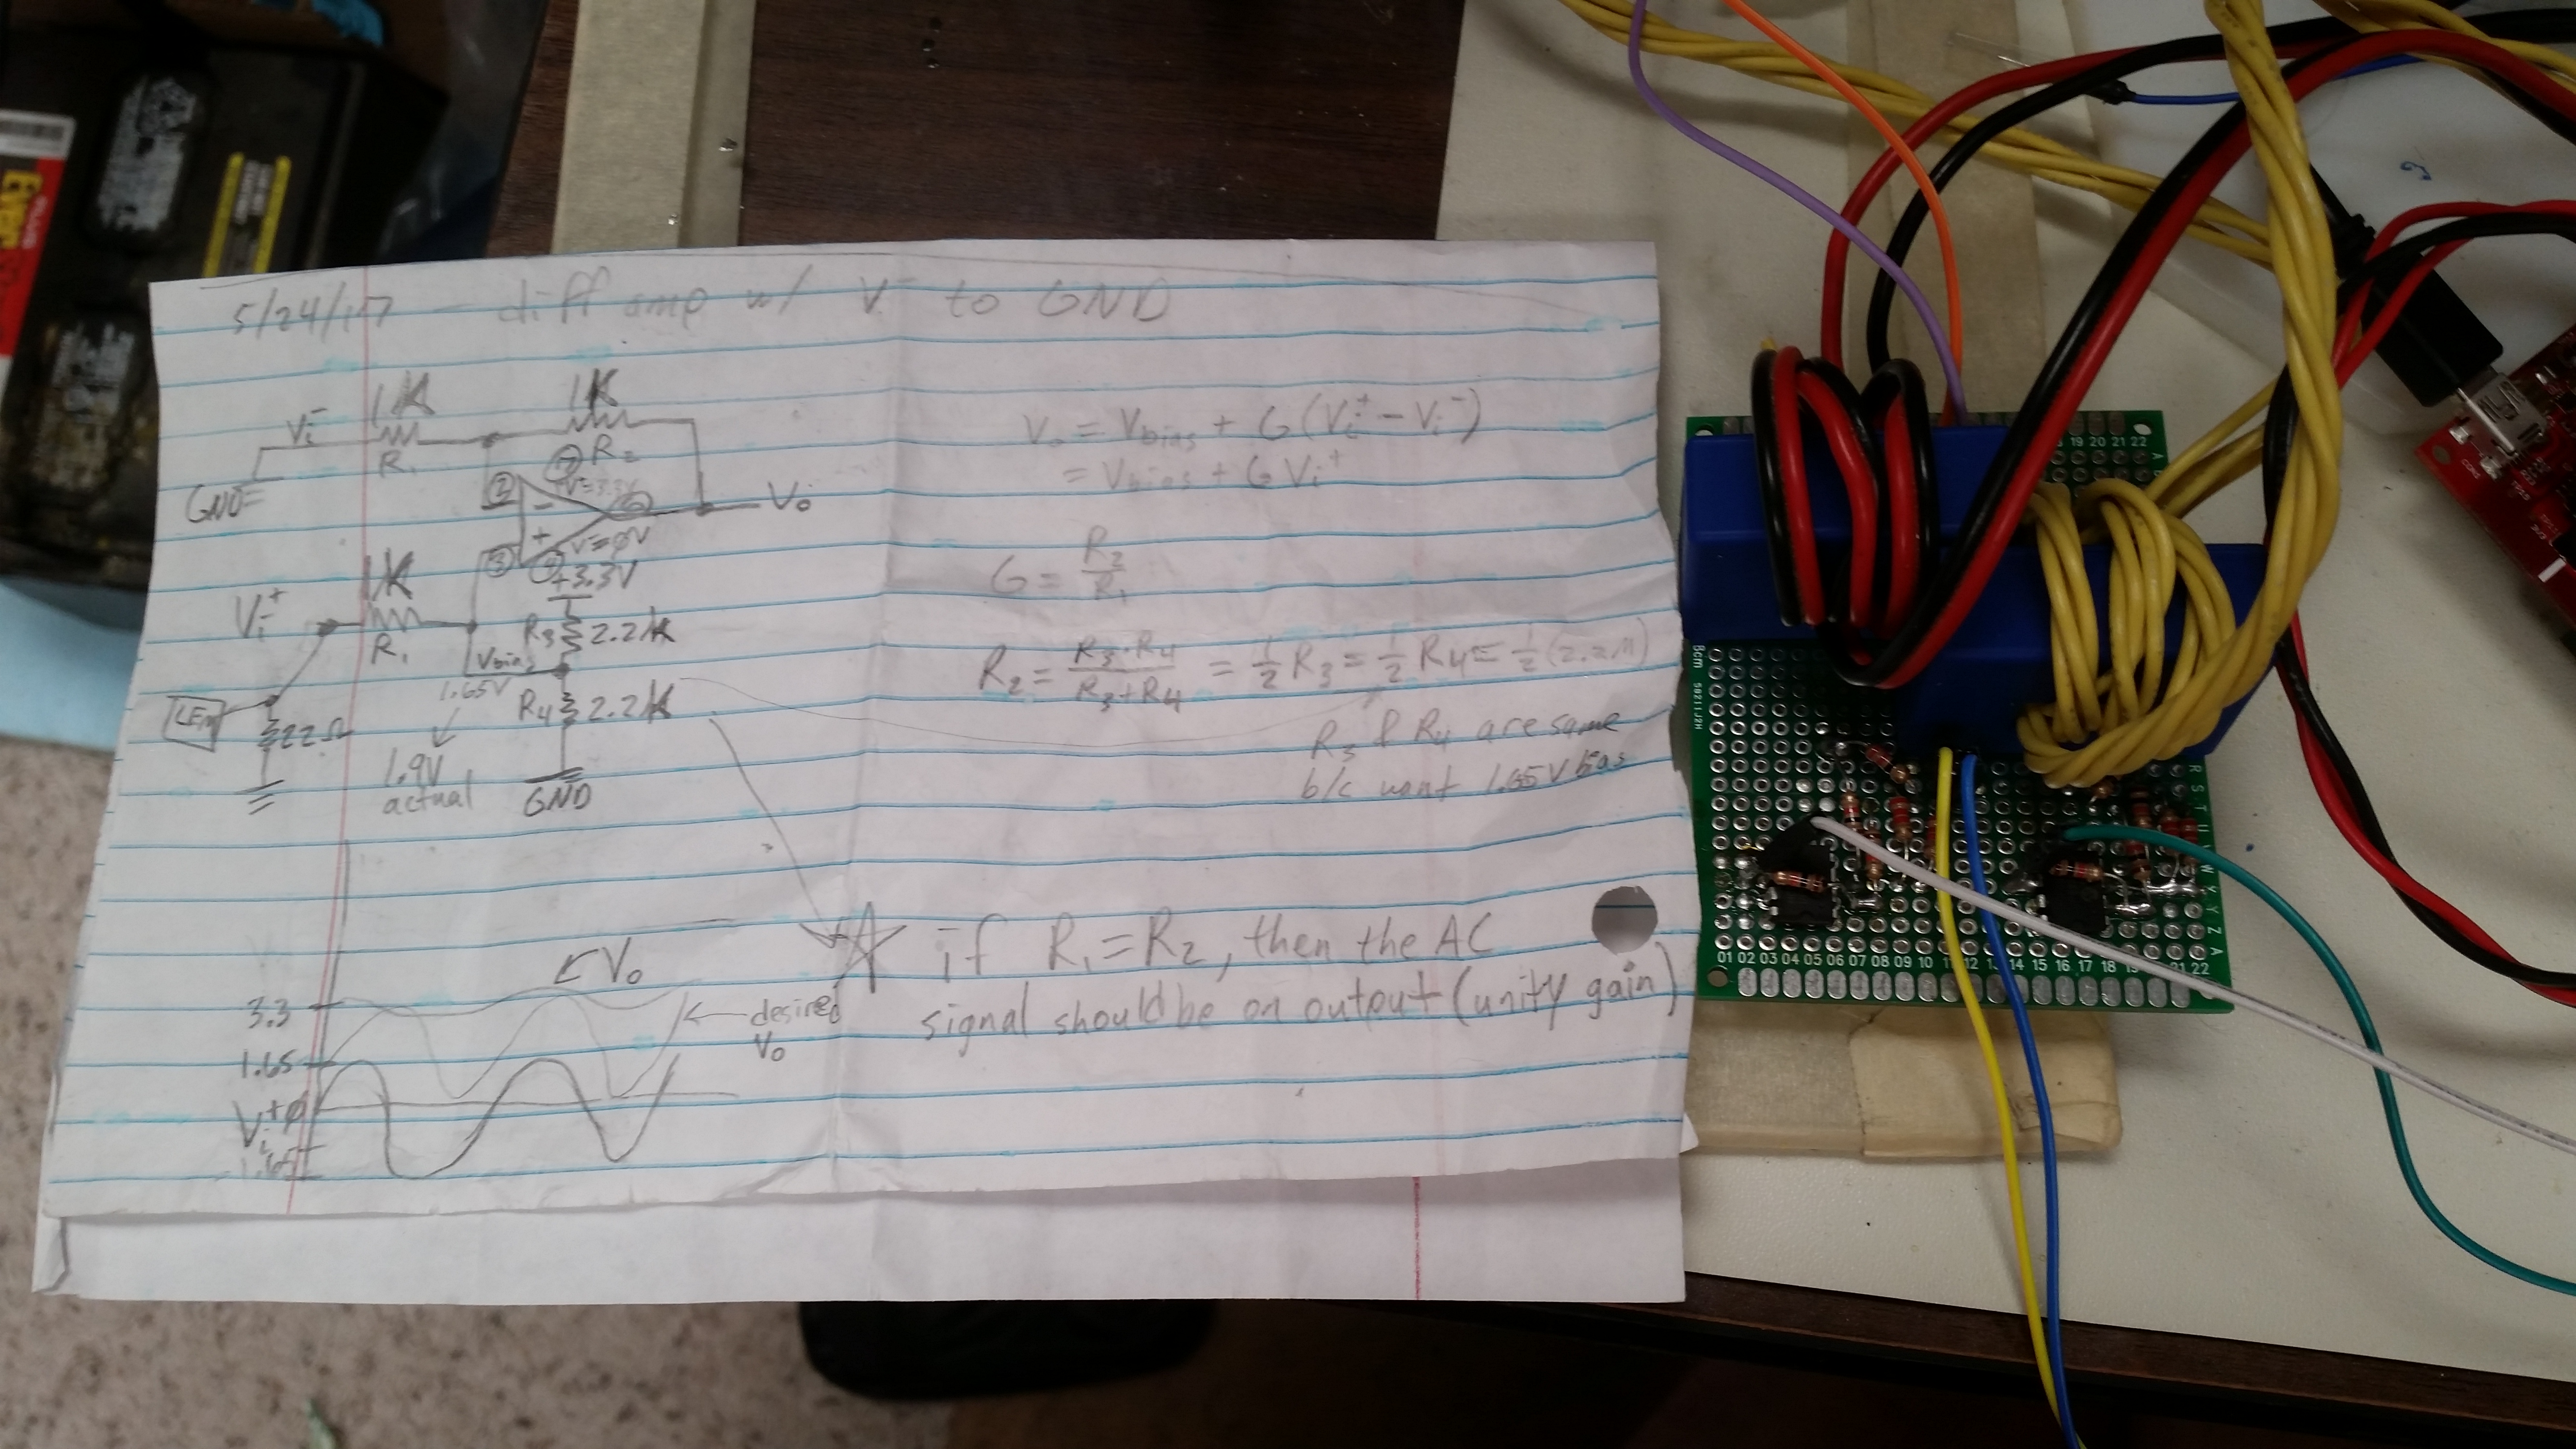 5/24/17 - diff amp w/ V- to GND
1K
1K
Vi-
R1
R2
GND
2
-
7
V=3.3V
6
Vo
+
V=0V
3
+3.3V
1K
Vi+
R1
R3
2.2K
Vbias
1.65V
R4
2.2K
LEM
22Ω
1.9V
actual
GND
Vo = Vbias + G(Vi+ - Vi-)
= Vbias + G Vi+
G = R2/R1
R2 = R3·R4/(R3+R4) = 1/2 R3 = 1/2 R4 = 1/2 (2.2K)
R3 & R4 are same
b/c want 1.65V bias
if R1=R2, then the AC
signal should be on output (unity gain)
Vo
3.3
desired
Vo
1.65
Vi+
0
1.65
19 20 21 22
A
8cm
R S T U
W X Y Z A
01 02 03 04 05 06 07 08 09 10 11 12 13 14 15 16 17 18 19 21 22